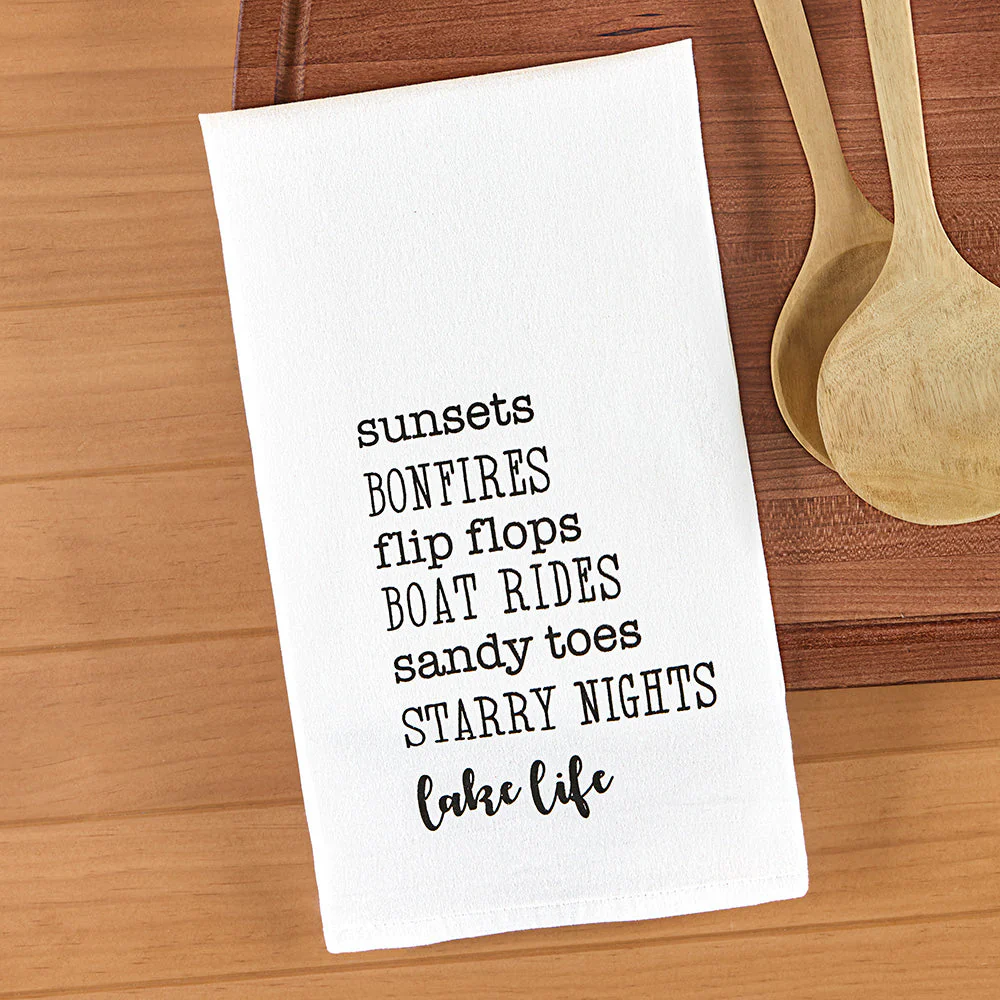 sunsets
BONFIRES
flip flops
BOAT RIDES
sandy toes
STARRY NIGHTS
lake life